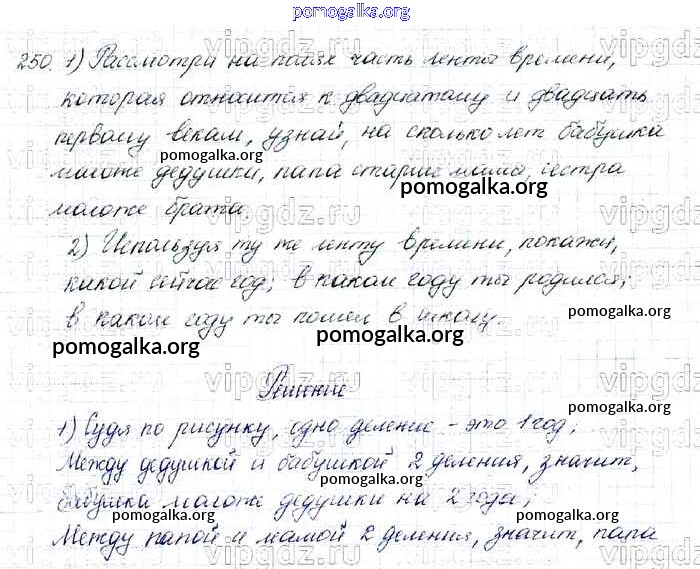 pomogalka.org
250. 1) Рассмотри на полях часть ленты времени,
которая относится к двадцатому и двадцать
первому векам, узнай, на сколько лет бабушка
pomogalka.org
моложе дедушки, папа старше мамы, сестра
pomogalka.org
моложе брата.
2) Используя ту же ленту времени, покажи,
какой сейчас год; в каком году ты родился;
в каком году ты пошел в школу.
pomogalka.org
pomogalka.org
pomogalka.org
Решение
pomogalka.org
1) Судя по рисунку, одно деление - это 1 год;
Между дедушкой и бабушкой 2 деления, значит,
бабушка моложе дедушки на 2 года;
pomogalka.org
pomogalka.org
Между папой и мамой 2 деления, значит, папа